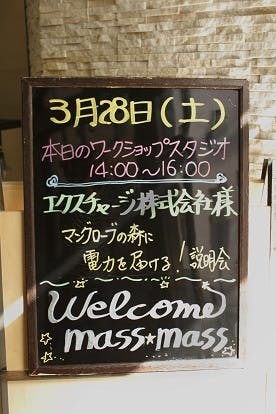 3月28日(土)
本日のワークショップスタジオ
14:00～16:00
エクスチャージ株式会社様
マングローブの森に
電力を届ける！説明会
Welcome
mass★mass